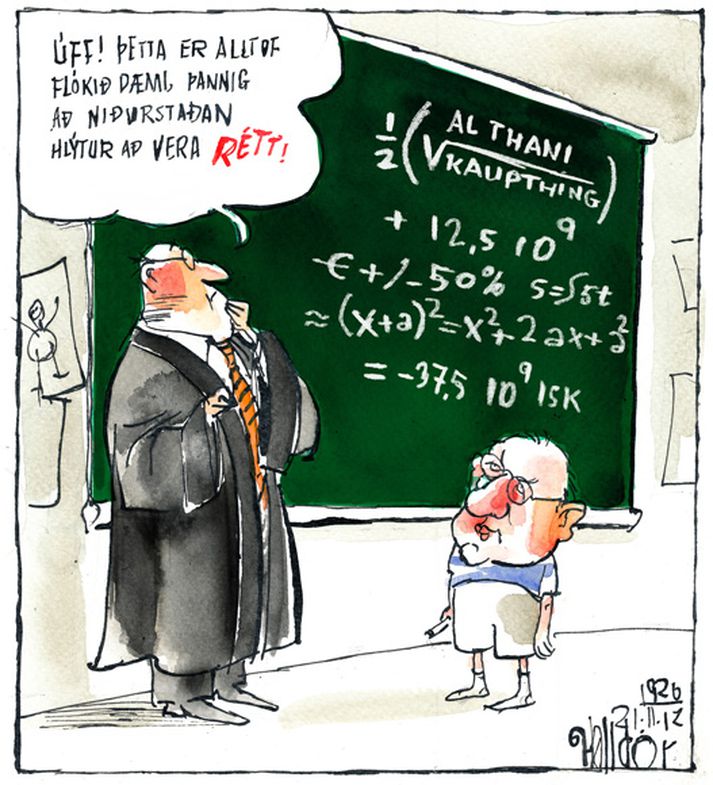 ÚFF! ÞETTA ER ALLTOF
FLÓKIÐ DÆMI, ÞANNIG
AÐ NIÐURSTAÐAN
HLÝTUR AÐ VERA RÉTT!
1/2 (AL THANI
√KAUPTHING)
+ 12,5 10⁹
€ +/- 50% S=∫5t
≈ (x+a)² = x² + 2ax + 2/a
= -37,5 10⁹ ISK
1926
21.11.12
Halldór